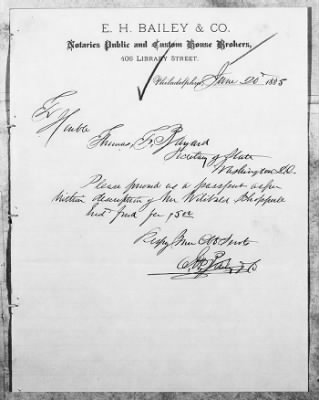 E. H. BAILEY & CO.
Notaries Public and Custom House Brokers,
406 LIBRARY STREET.
Philadelphia, June 20" 1885
To
Honble
Thomas, F. Bayard
Secretary of State
Washington D.C.
Please forward us a passport as per
description of Mr Wilibald
find for
Respy Your Obt Servts